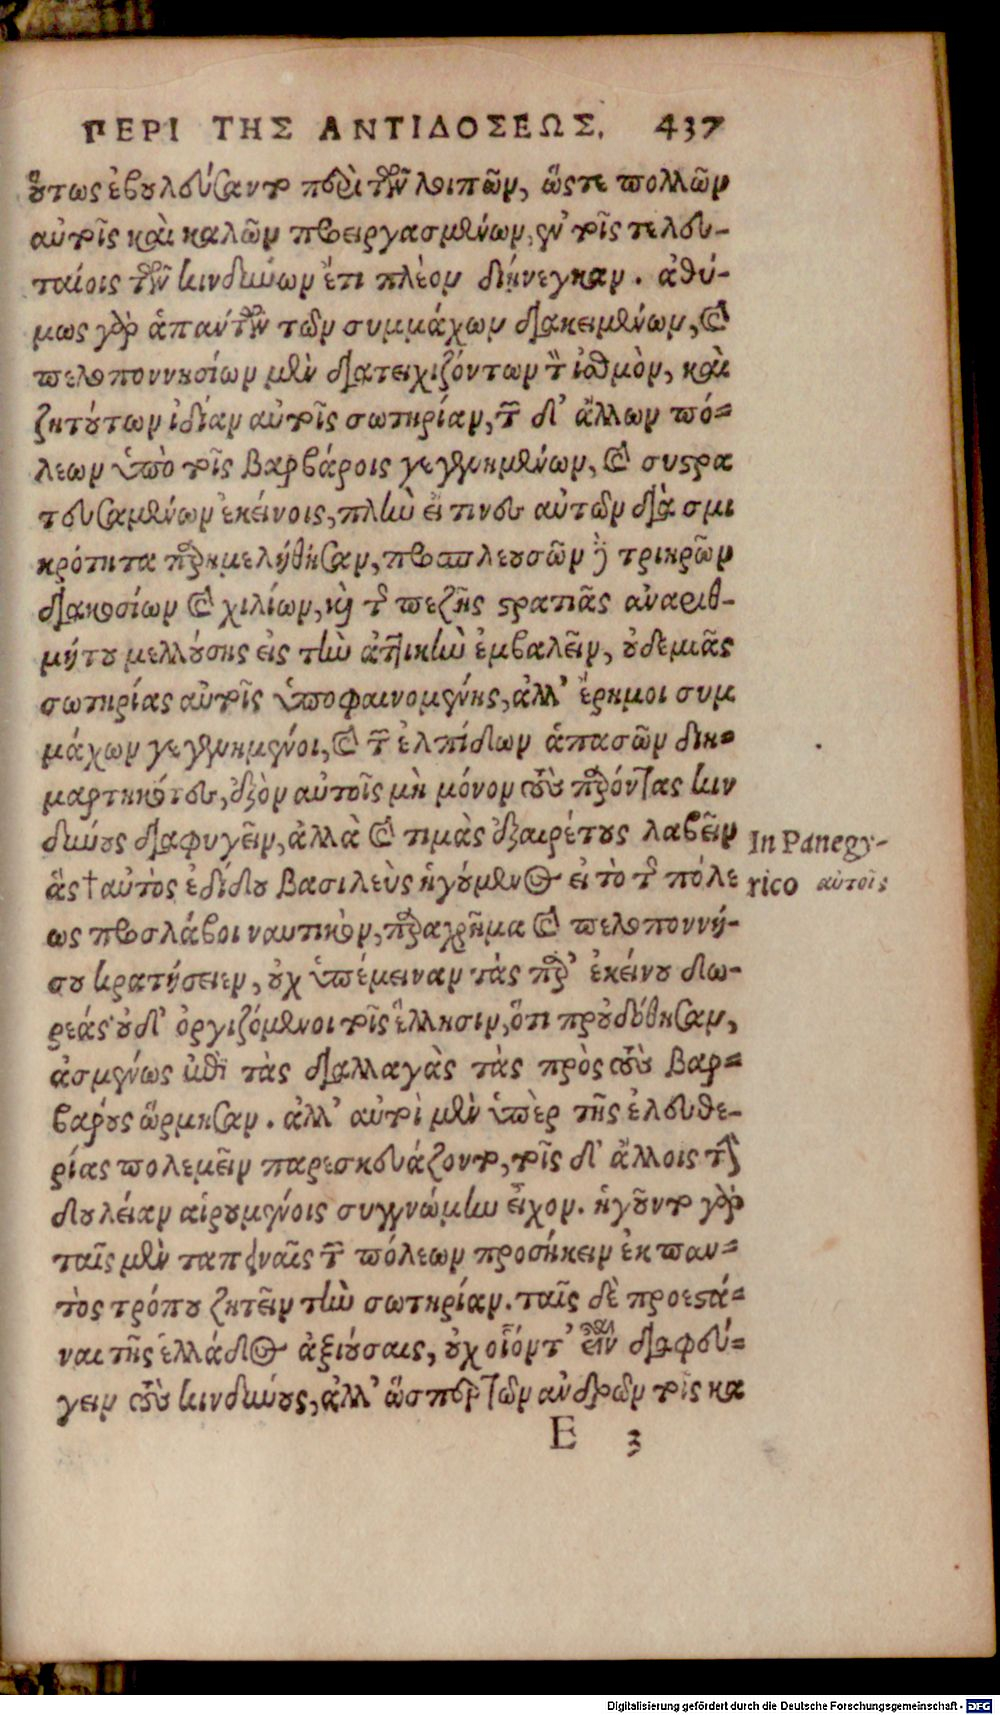 ΠΕΡΙ ΤΗΣ ΑΝΤΙΔΟΣΕΩΣ. 437
οὕτως ἐβουλεύσαντο περὶ τῶν λοιπῶν, ὥςτε πολλῶν
αὐτοῖς καὶ καλῶν προειργασμένων, ἐν τοῖς τελευ-
ταίοις τῶν κινδύνων ἔτι πλέον διήνεγκαν. ἀθύ-
μως γὰρ ἁπάντων τῶν συμμάχων διακειμένων, καὶ
πελοποννησίων μὲν διατειχιζόντων τὸν ἰσθμὸν, καὶ
ζητούντων ἰδίαν αὐτοῖς σωτηρίαν, τῶν δ' ἄλλων πό-
λεων ὑπὸ τοῖς βαρβάροις γεγενημένων, καὶ συστρα
τευσαμένων ἐκείνοις, πλὴν εἴ τινες αὐτῶν διὰ σμι
κρότητα παρημελήθησαν, προσπλεουσῶν δὲ τριηρῶν
διακοσίων καὶ χιλίων, καὶ τῆς πεζῆς στρατιᾶς ἀναριθ-
μήτου μελλούσης εἰς τὴν ἀττικὴν ἐμβαλεῖν, οὐδεμιᾶς
σωτηρίας αὐτοῖς ὑποφαινομένης, ἀλλ' ἔρημοι συμ
μάχων γεγενημένοι, καὶ τῶν ἐλπίδων ἁπασῶν διη-
μαρτηκότες, ἐξὸν αὐτοῖς μὴ μόνον τοὺς παρόντας κιν
δύνους διαφυγεῖν, ἀλλὰ καὶ τιμὰς ἐξαιρέτους λαβεῖν
ἃς † αὐτὸς ἐδίδου βασιλεὺς ἡγούμενος εἰ τὸ τῆς πόλε
ως προσλάβοι ναυτικὸν, παραχρῆμα καὶ πελοποννή-
σου κρατήσειεν, οὐχ ὑπέμειναν τὰς παρ' ἐκείνου δω-
ρεάς· οὐδ' ὀργιζόμενοι τοῖς ἕλλησιν, ὅτι προυδόθησαν,
ἀσμένως ἐπὶ τὰς διαλλαγὰς τὰς πρὸς τοὺς βαρ-
βάρους ὥρμησαν. ἀλλ' αὐτοὶ μὲν ὑπὲρ τῆς ἐλευθε-
ρίας πολεμεῖν παρεσκευάζοντο, τοῖς δ' ἄλλοις τὴν
δουλείαν αἱρουμένοις συγγνώμην εἶχον. ἡγοῦντο γὰρ
ταῖς μὲν ταπειναῖς τῶν πόλεων προσήκειν ἐκ παν-
τὸς τρόπου ζητεῖν τὴν σωτηρίαν. ταῖς δὲ προεστά-
ναι τῆς ἑλλάδος ἀξιούσαις, οὐχ οἷόντ' εἶναι διαφεύ-
γειν τοὺς κινδύνους, ἀλλ' ὥσπερ τῶν ἀνδρῶν τοῖς κα
E 3
In Panegy-
rico αὐτοῖς
Digitalisierung gefördert durch die Deutsche Forschungsgemeinschaft - DFG